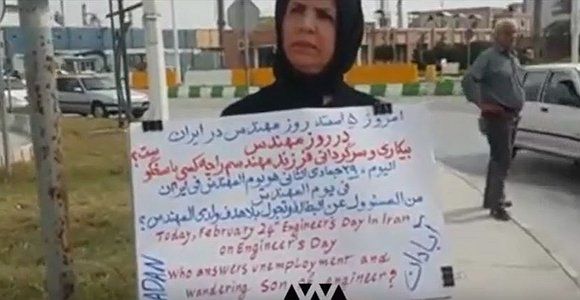 امروز ۵ اسفند روز مهندس در ایران
در روز مهندس
بیکاری و سرگردانی فرزند مهندسم را چه کسی پاسخگو
ست؟
الیوم، ۲۹ جمادی الثانی هو یوم المهندس فی ایران
فی یوم المهندس
من المسؤول عن البطالة وتجول بلا هدف ولدی المهندس؟
Today, February 24th Engineer's Day In Iran
on Engineer's Day
who answers unemployment and
wandering Son engineer?
آبادان
ADAN